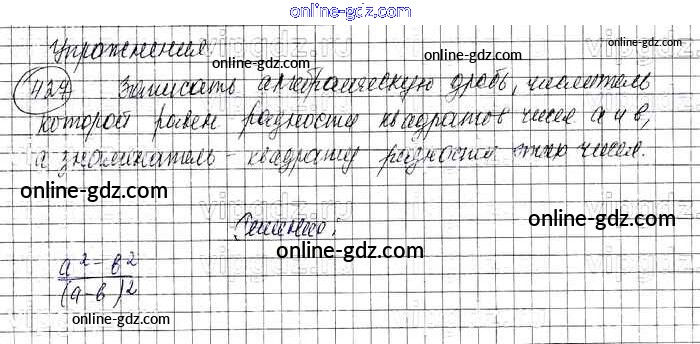 online-gdz.com
Упражнения
online-gdz.com
427 Записать алгебраическую дробь, числитель
которой равен разности квадратов чисел a и b,
а знаменатель - квадрату разности этих чисел.
online-gdz.com
online-gdz.com
Решение:
online-gdz.com
a² - b²
(a-b)²
online-gdz.com